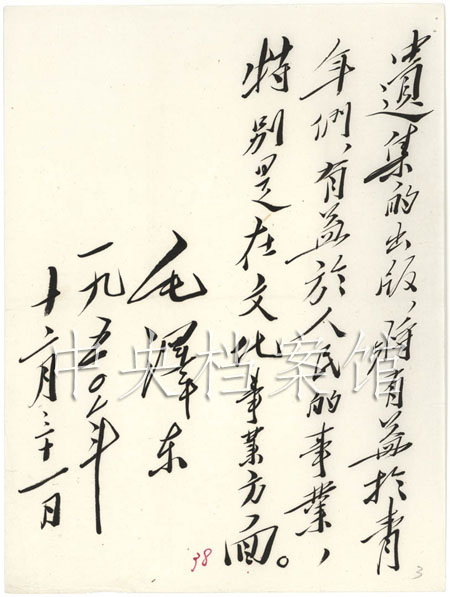 遺集的出版，将有益於青
年們，有益於人民的事業，
特别是在文化事業方面。
毛澤东
一九五〇年
十二月三十一日
中央档案馆
38
3